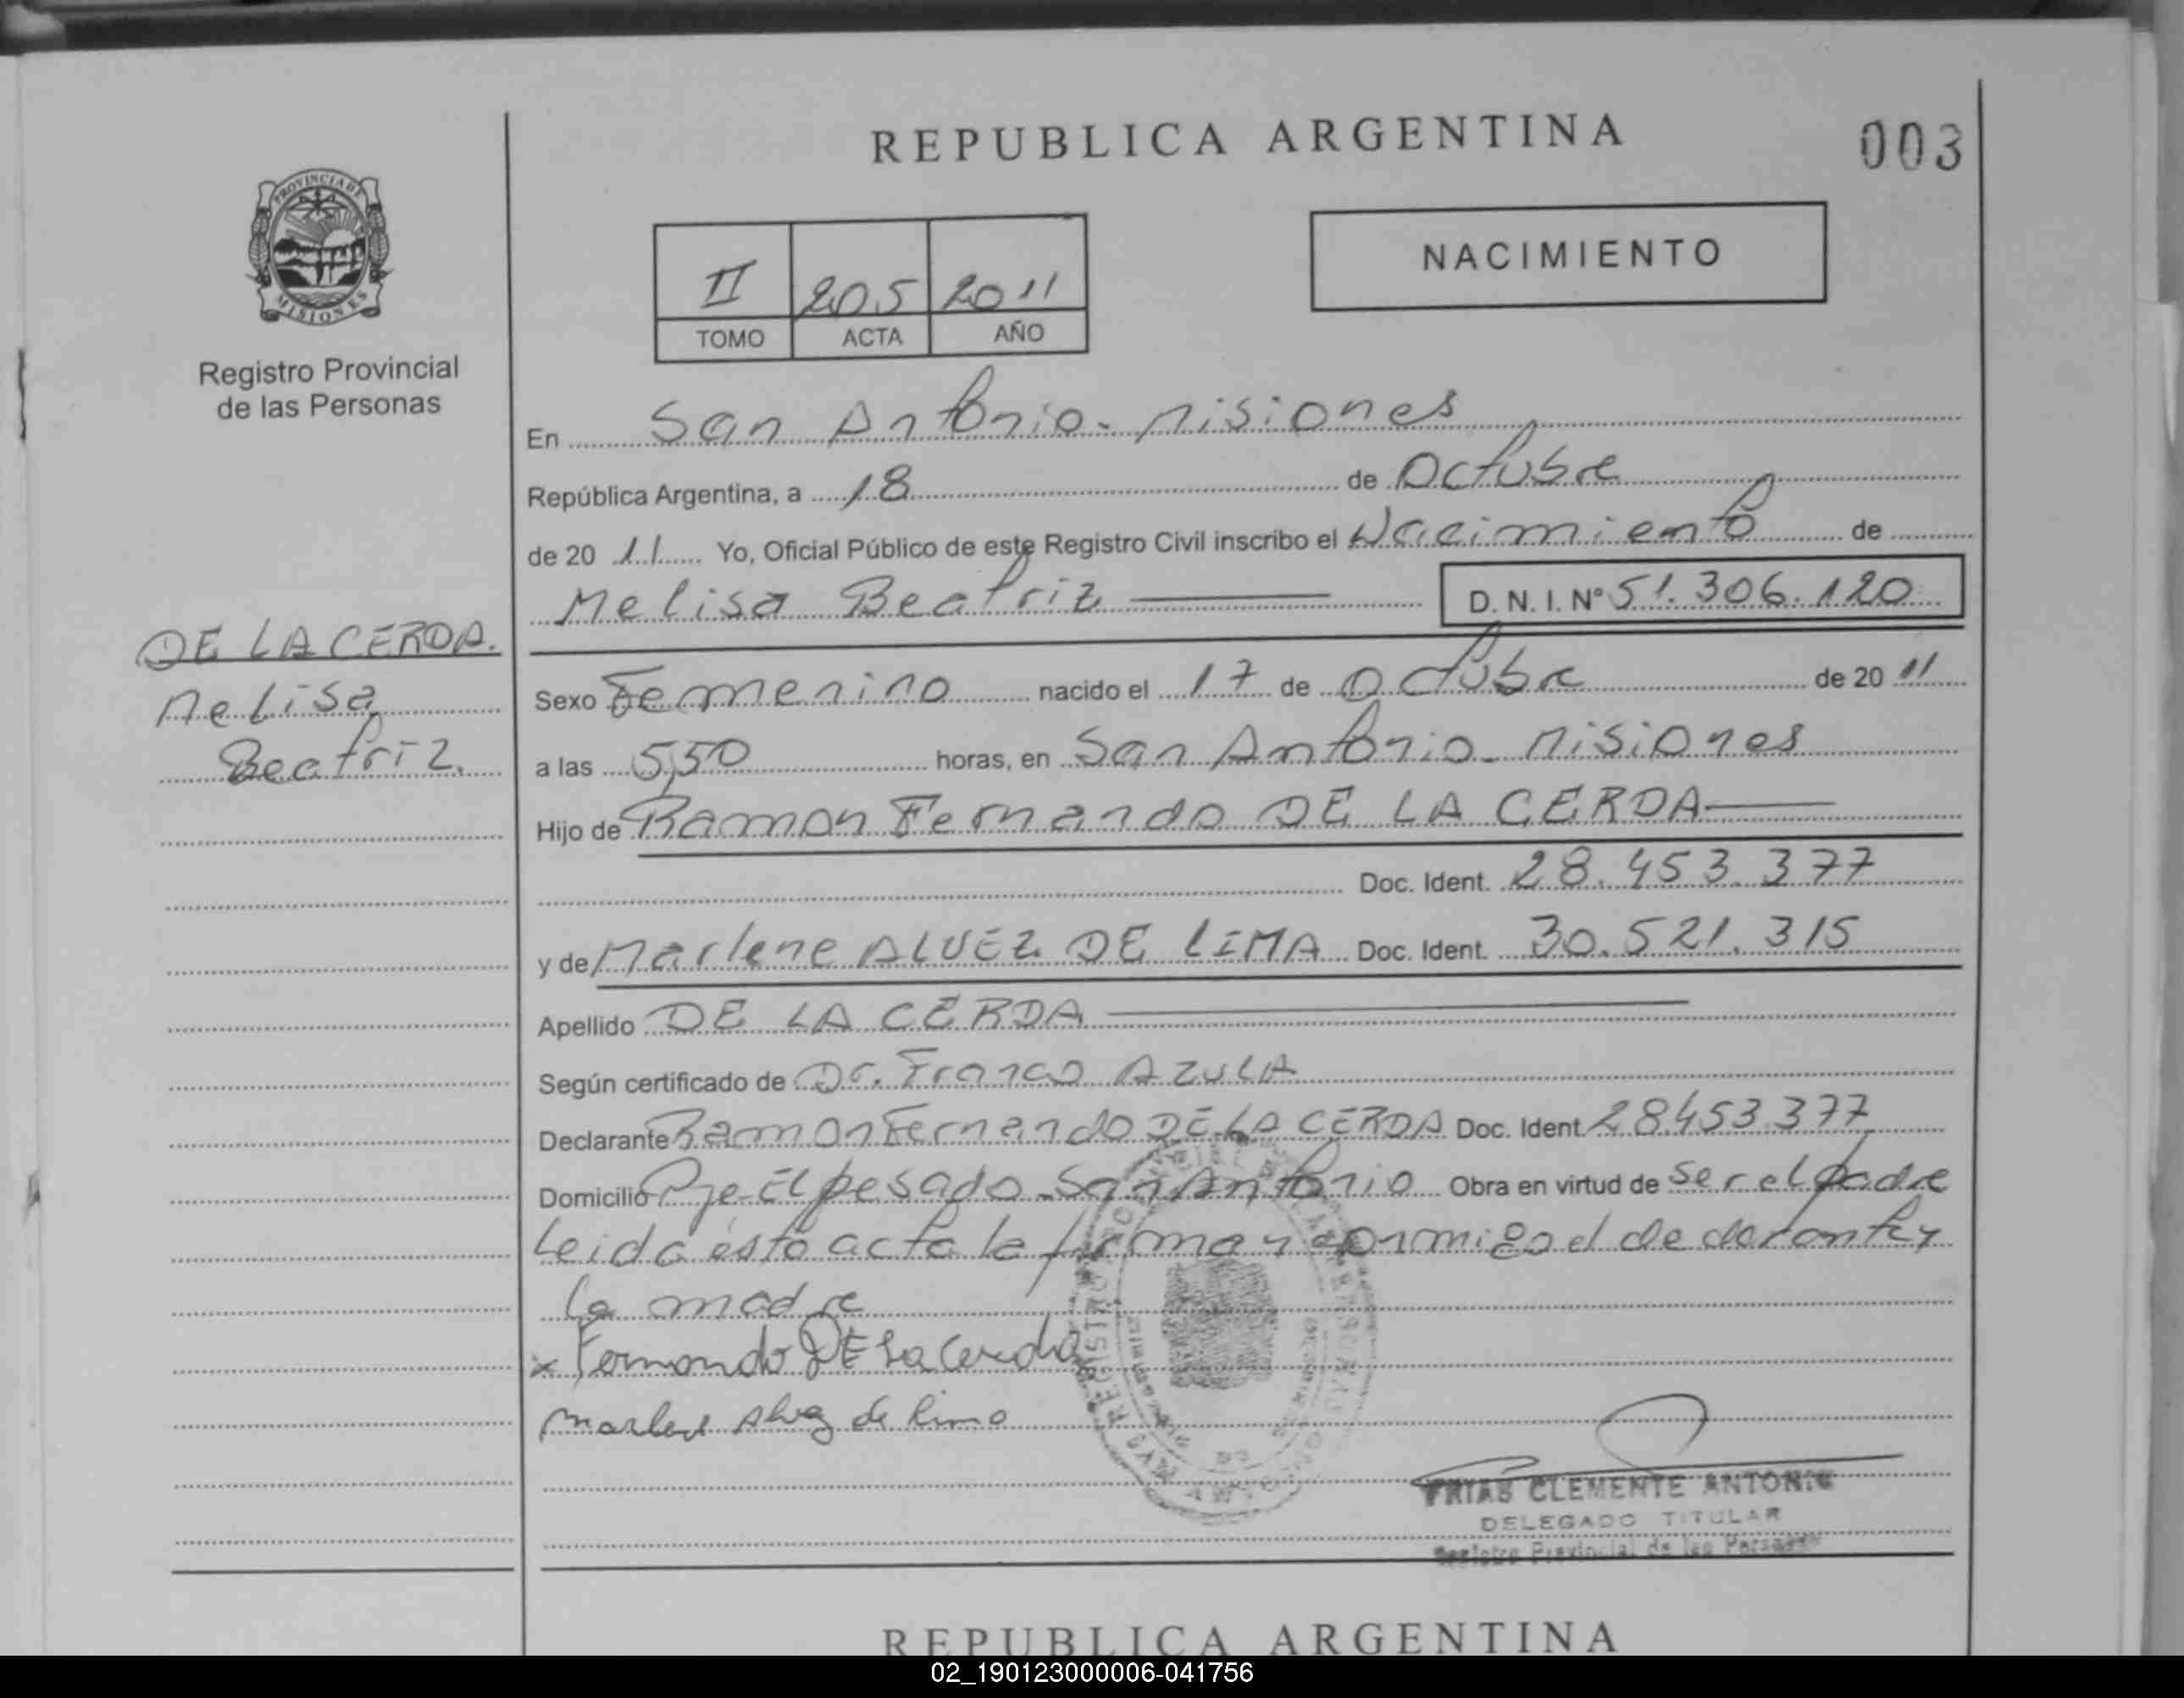 REPUBLICA ARGENTINA
003
PROVINCIA DE
MISIONES
Registro Provincial
de las Personas
II 205 2011
TOMO ACTA AÑO
NACIMIENTO
En San Antonio - Misiones
República Argentina, a 18 de Octubre
de 20 11 Yo, Oficial Público de este Registro Civil inscribo el Nacimiento de
Melisa Beatriz D. N. I. N° 51.306.120
DE LA CERDA.
Melisa
Beatriz.
Sexo Femenino nacido el 17 de Octubre de 20 11
a las 5,50 horas, en San Antonio - Misiones
Hijo de Ramon Fernando DE LA CERDA
Doc. Ident. 28.453.377
y de Marlene ALVEZ DE LIMA Doc. Ident. 30.521.315
Apellido DE LA CERDA
Según certificado de Dr. Franco AZULA
Declarante Ramon Fernando DE LA CERDA Doc. Ident. 28.453.377
Domicilio Pje El pesado - San Antonio Obra en virtud de ser el padre
Leida esta acta la firman conmigo el declarante y
la madre
x Fernando DE La Cerda
Marlene Alvez de Lima
REGISTRO
FRIAS CLEMENTE ANTONIO
DELEGADO TITULAR
Registro Provincial de las Personas
REPUBLICA ARGENTINA
02_190123000006-041756